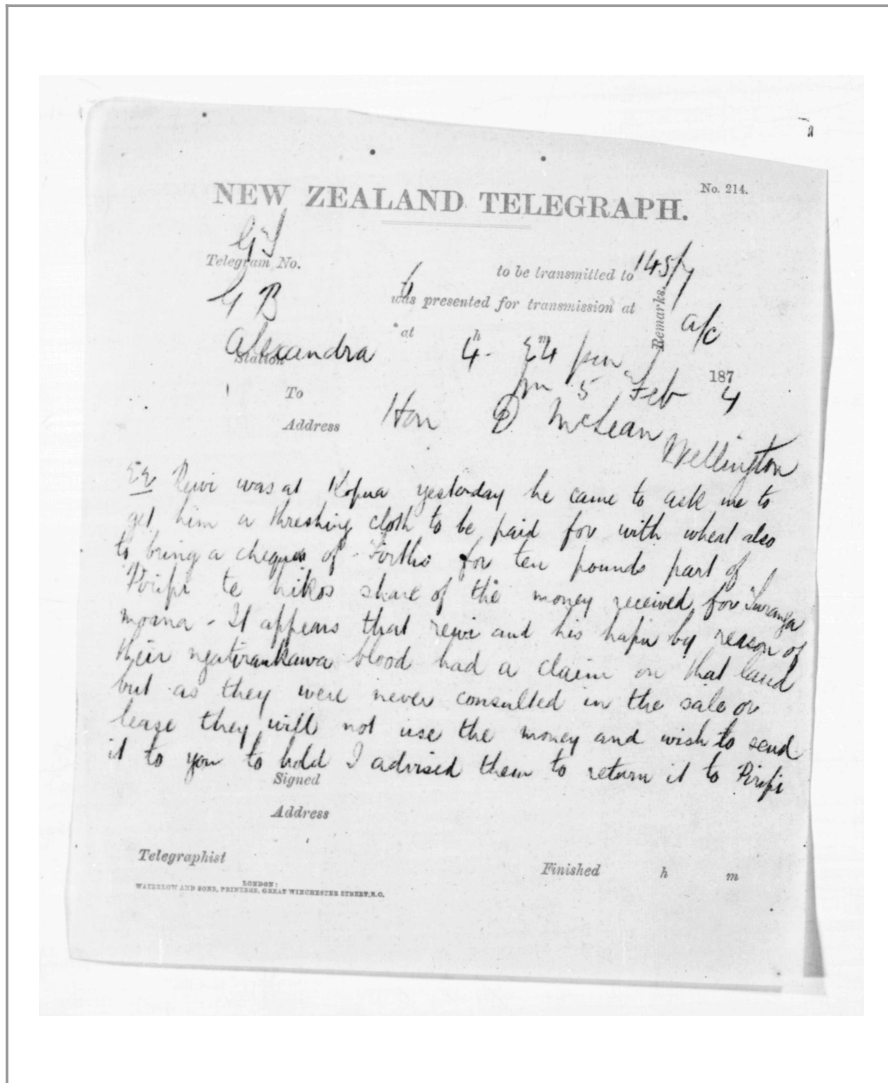 No. 214.
NEW ZEALAND TELEGRAPH.
Telegram No. to be transmitted to 145/7
G B was presented for transmission at Remarks. a/c
Alexandra at 4 h m pm
Station 5 Feb 1874
To
Address Hon D McLean
Wellington
Rewi was at Kopua yesterday he came to ask me to
get him a threshing cloth to be paid for with wheat also
to bring a cheque of Firths for ten pounds part of
Piripi te hikos share of the money received for Tauranga
moana - It appears that rewi and his hapu by reason of
their ngatiraukawa blood had a claim on that land
but as they were never consulted in the sale or
lease they will not use the money and wish to send
it to you to hold I advised them to return it to Piripi
Signed
Address
Telegraphist Finished h m
LONDON:
WATERLOW AND SONS, PRINTERS, GREAT WINCHESTER STREET, E.C.